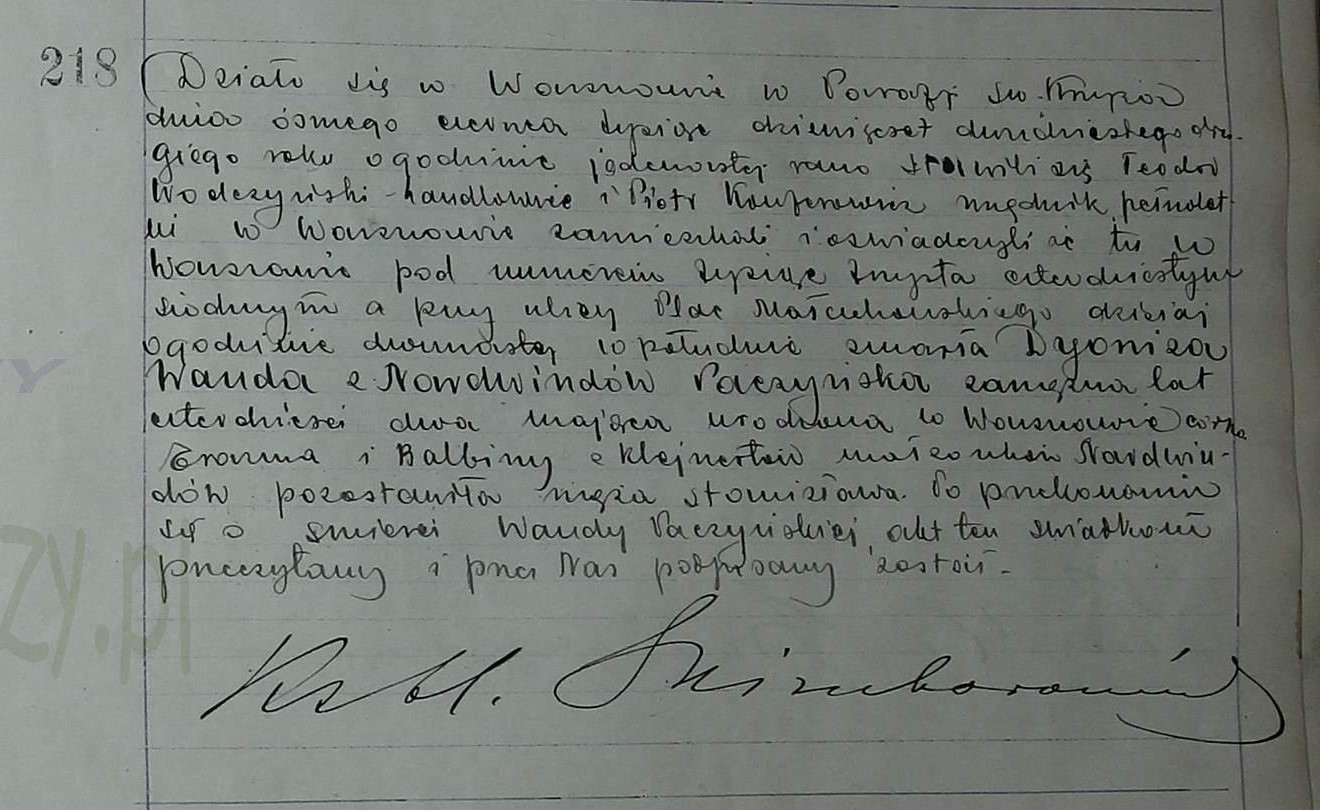 218 Działo się w Warszawie w Parafji św. Krzyża
dnia ósmego czerwca tysiąc dziewięćset dwudziestego dru-
giego roku o godzinie jedenastej rano stawili się Teodor
Wodczyński - handlowiec i Piotr Kauferowicz urzędnik pełnolet-
ni w Warszawie zamieszkali i oświadczyli że tu w
Warszawie pod numerem tysiąc trzysta czterdziestym
siódmym a przy ulicy Plac Małachowskiego dzisiaj
o godzinie dwunastej w południe zmarła Dyoniza
Wanda z Nardwindów Paczyńska zamężna lat
czterdzieści dwa mająca urodzona w Warszawie córka
i Balbiny z Klejnertów małżonków Nardwin-
dów pozostawiła męża Stanisława. Po przekonaniu
się o śmierci Wandy Paczyńskiej, akt ten świadkom
przeczytany i przez Nas podpisany został -
Ks M.
ZY.pl